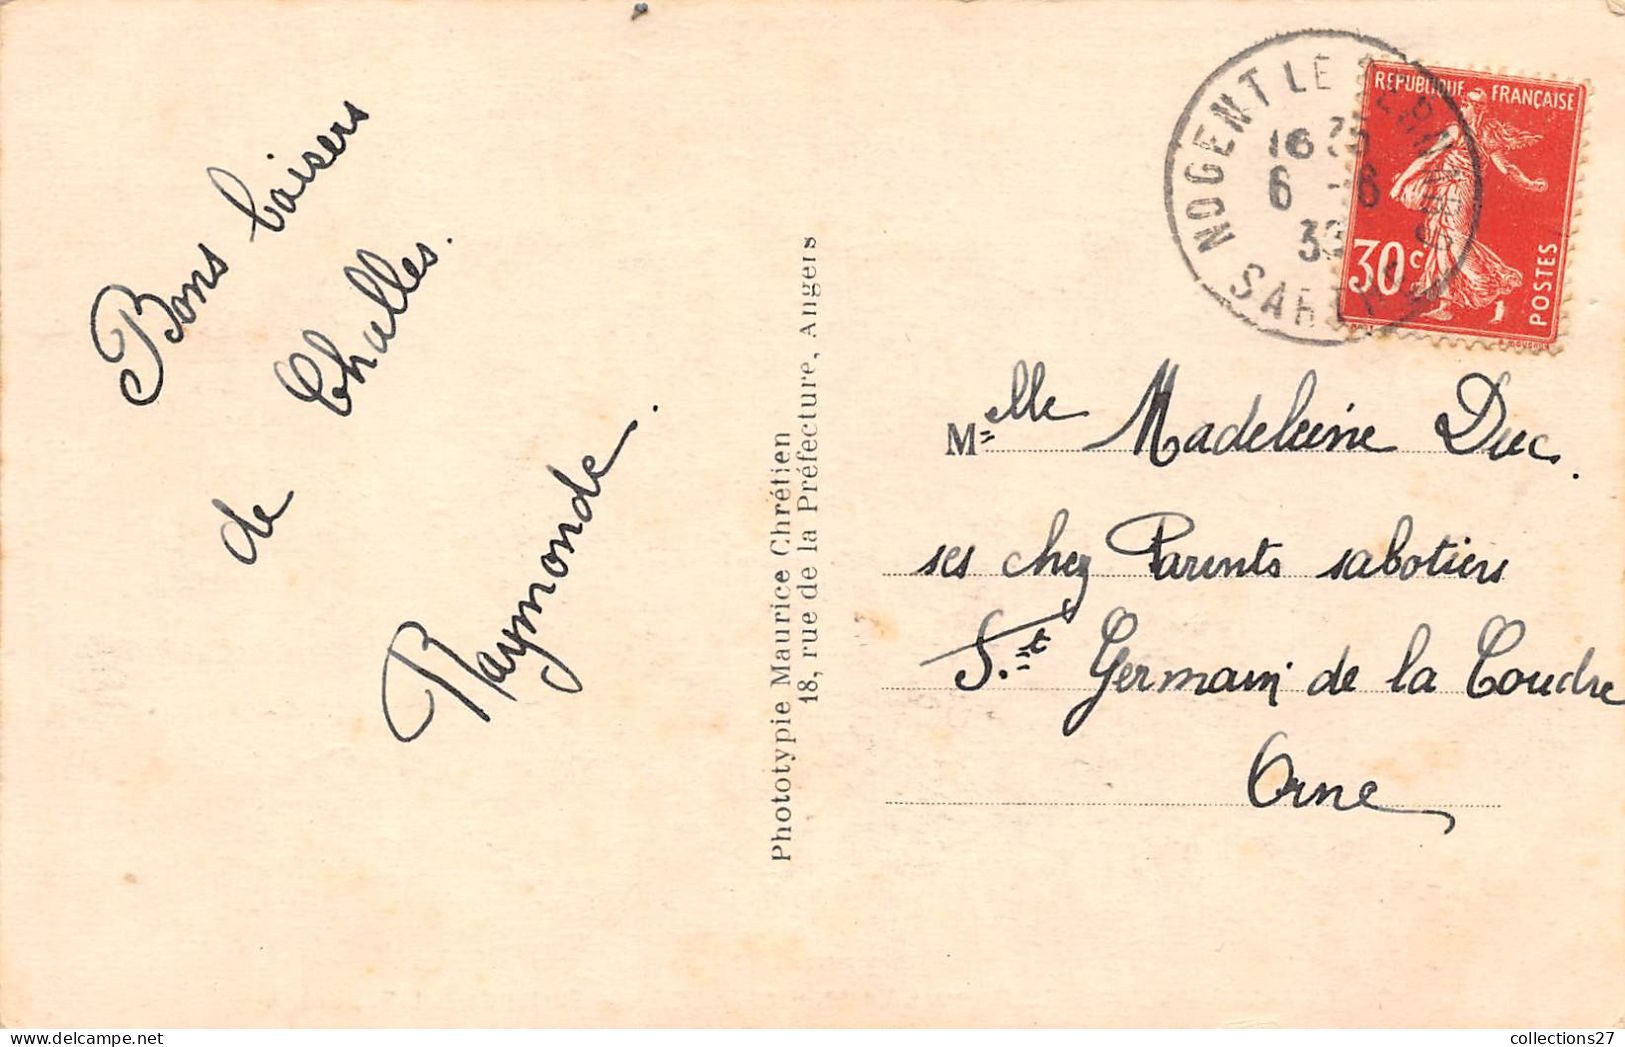 Bons baisers
de Challes.
de
Raymonde.
Phototypie Maurice Chrétien
18, rue de la Préfecture, Angers
NOGENT LE BERNARD
16
6 - 6
SARTHE
REPUBLIQUE FRANÇAISE
30 c
POSTES
Melle Madeleine Duc.
ses chez Parents sabotiers
St Germain de la Coudre
Orne
collections27